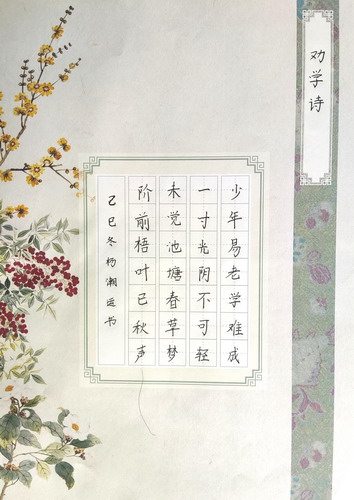 劝学诗
少年易老学难成
一寸光阴不可轻
未觉池塘春草梦
阶前梧叶已秋声
乙巳冬杨潮运书